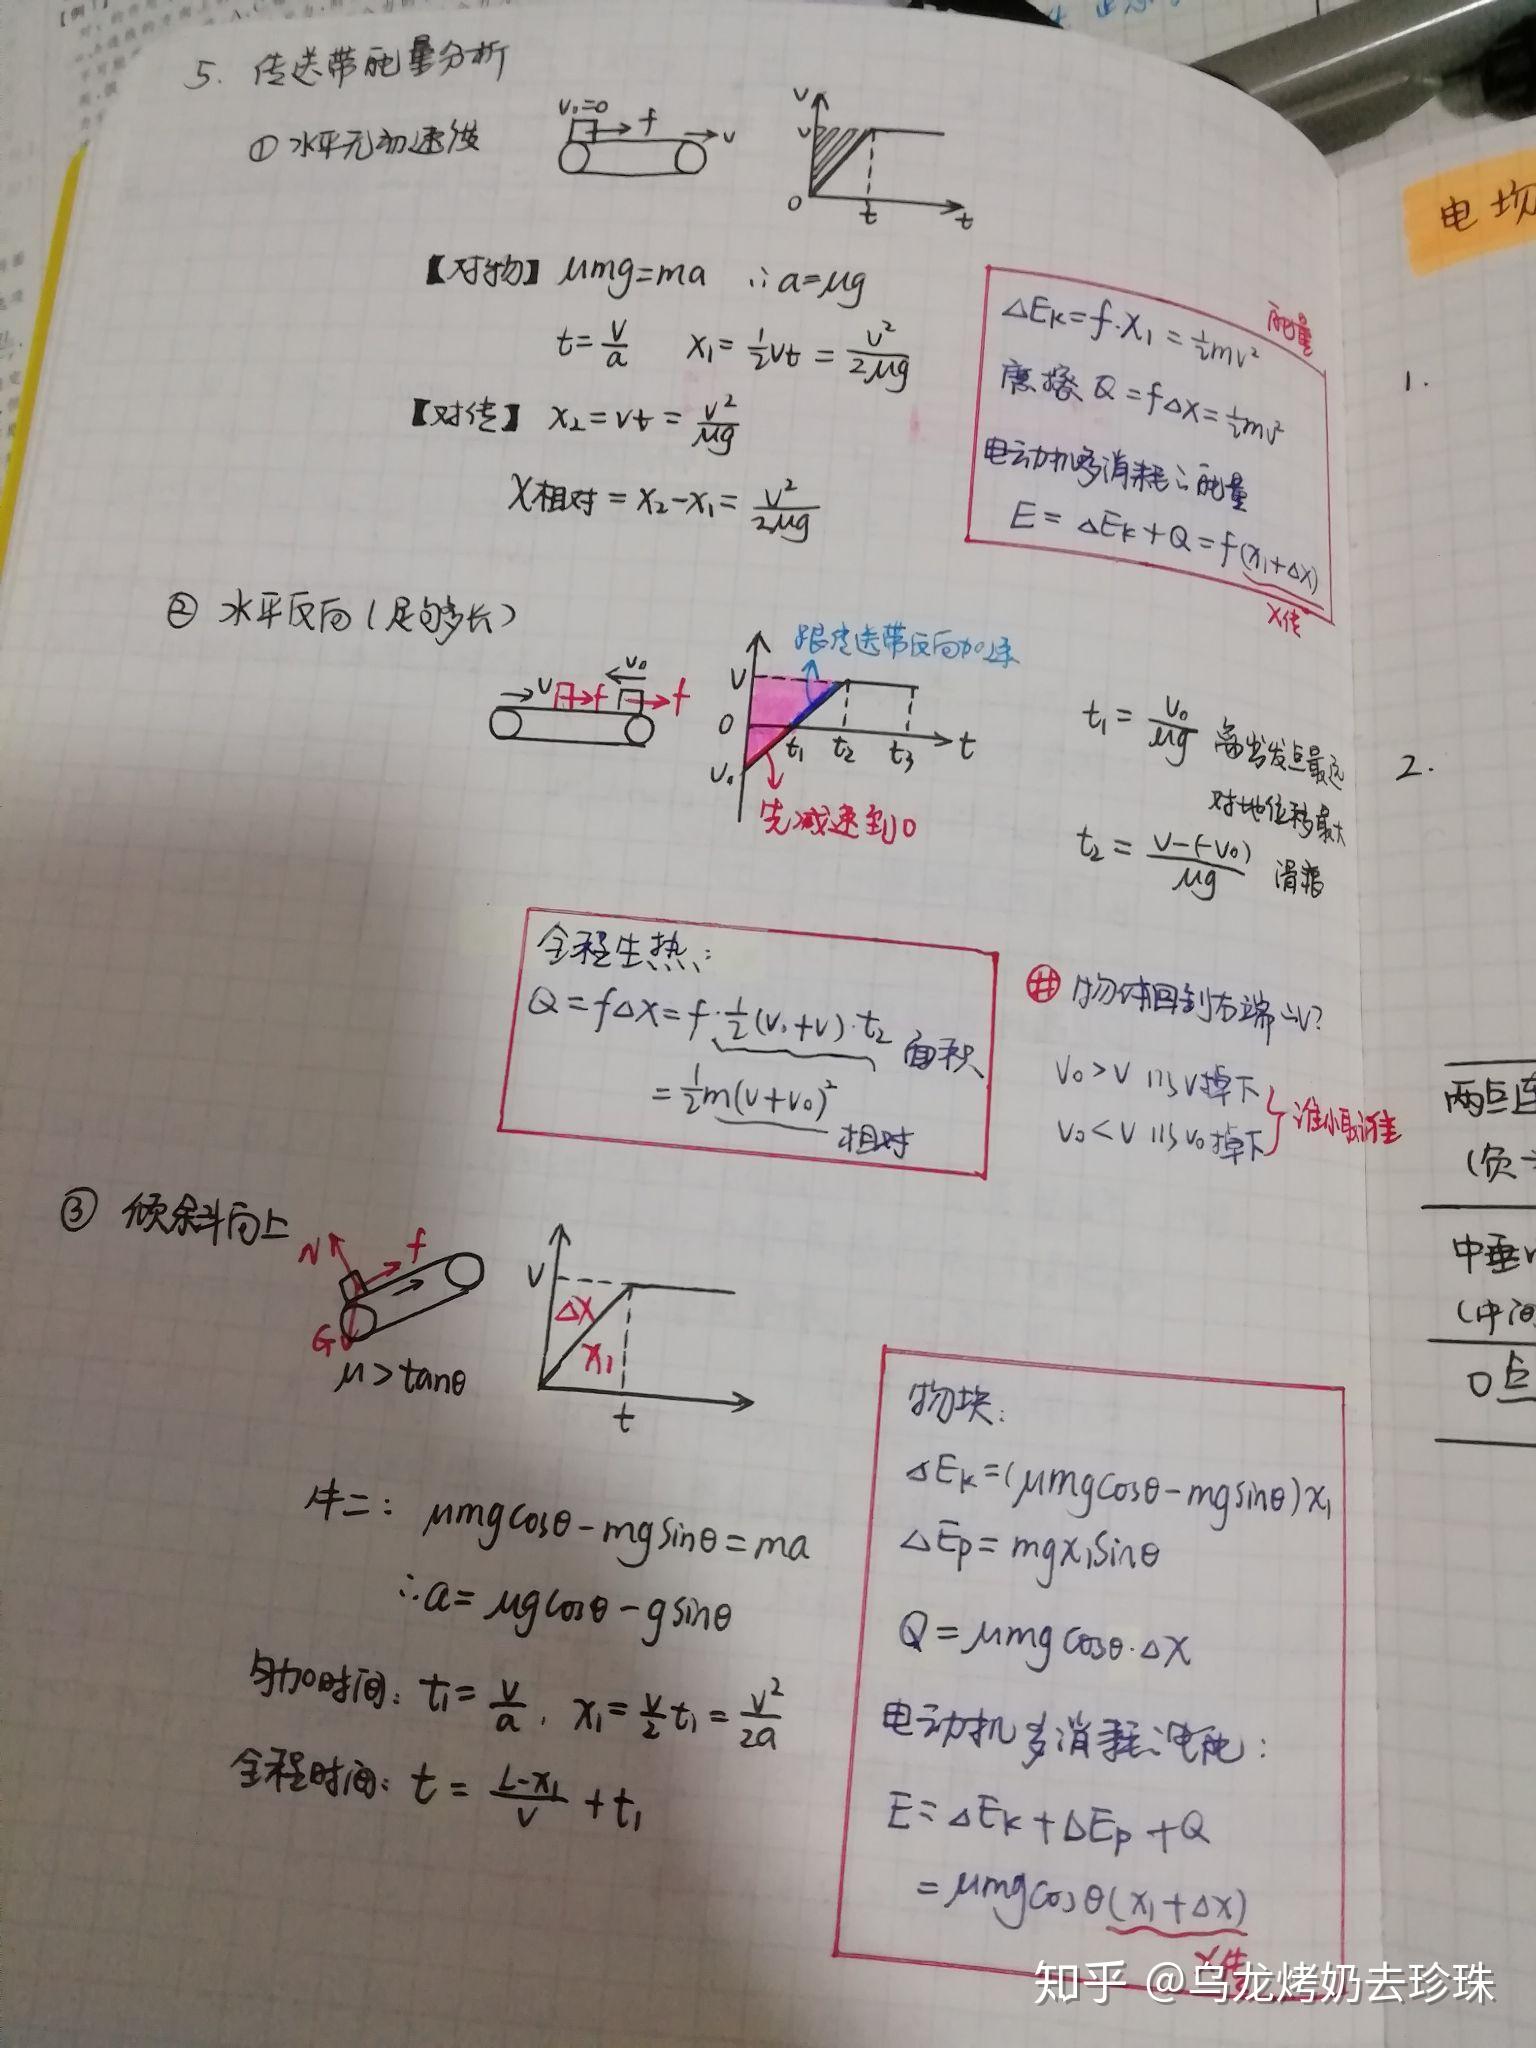 5. 传送带能量分析
① 水平无初速度
v₀=0
f
v
v
v
0
t
t
【对物】 μmg=ma ∴a=μg
t=v/a x₁=½vt=v²/2μg
【对传】 x₂=vt=v²/μg
x相对=x₂-x₁=v²/2μg
能量
ΔEk=f·x₁=½mv²
摩擦 Q=fΔx=½mv²
电动机多消耗的能量
E=ΔEk+Q=f(x₁+Δx)
x传
② 水平反向(足够多长)
v
f
v₀
f
跟传送带反向加速
v
0
v₀
t₁
t₂
t₃
t
先减速到0
t₁=v₀/μg 离出发点最远
对地位移最大
t₂=v-(-v₀)/μg 滑痕
全程生热:
Q=fΔx=f·½(v₀+v)·t₂ 面积
=½m(v+v₀)² 相对
# 物体回到右端的v?
v₀>v 以v掉下
v₀<v 以v₀掉下
谁小取谁
③ 倾斜向上
N
f
G
μ>tanθ
v
Δx
x₁
t
牛二: μmgcosθ-mgsinθ=ma
∴a=μgcosθ-gsinθ
匀加时间: t₁=v/a, x₁=v/2 t₁=v²/2a
全程时间: t=L-x₁/v+t₁
物块:
ΔEk=(μmgcosθ-mgsinθ)x₁
ΔEp=mgx₁sinθ
Q=μmgcosθ·Δx
电动机多消耗的电能:
E=ΔEk+ΔEp+Q
=μmgcosθ(x₁+Δx)
x传
电场
1.
2.
两点连
(负
中垂
(中间
0点
知乎 @乌龙烤奶去珍珠